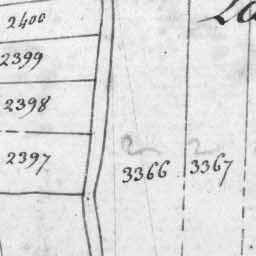 2400
2399
2398
2397
3366
3367